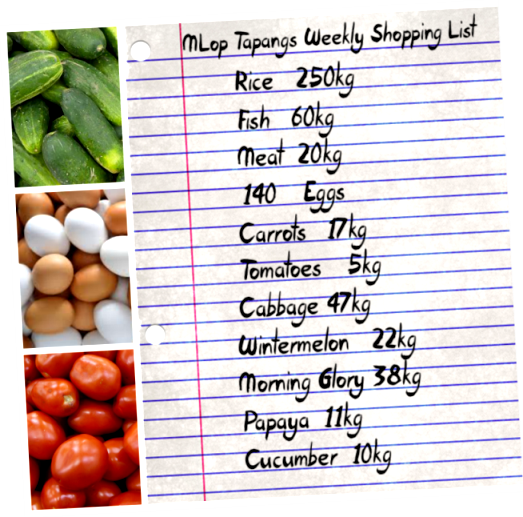 MLop Tapangs Weekly Shopping List
Rice 250kg
Fish 60kg
Meat 20kg
140 Eggs
Carrots 17kg
Tomatoes 5kg
Cabbage 47kg
Wintermelon 22kg
Morning Glory 38kg
Papaya 11kg
Cucumber 10kg